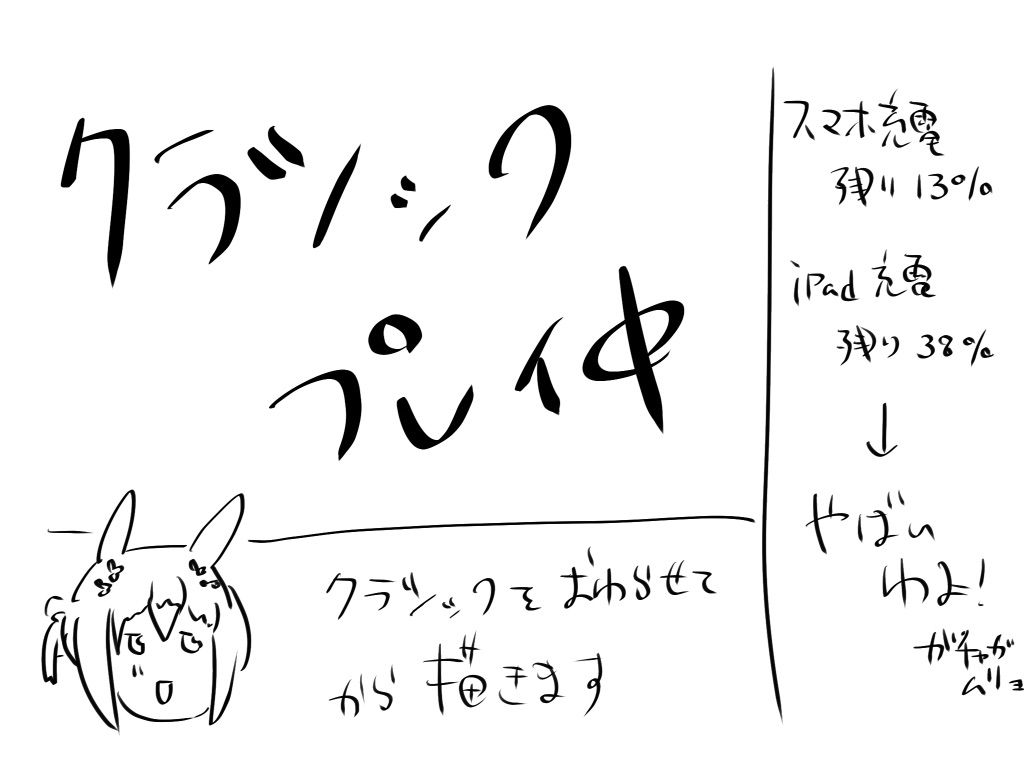 クラシック
プレイ中
クラシックをおわらせて
から描きます
スマホ充電
残り13%
iPad充電
残り38%
↓
やばい
わよ!
ガチャが
ムリョ